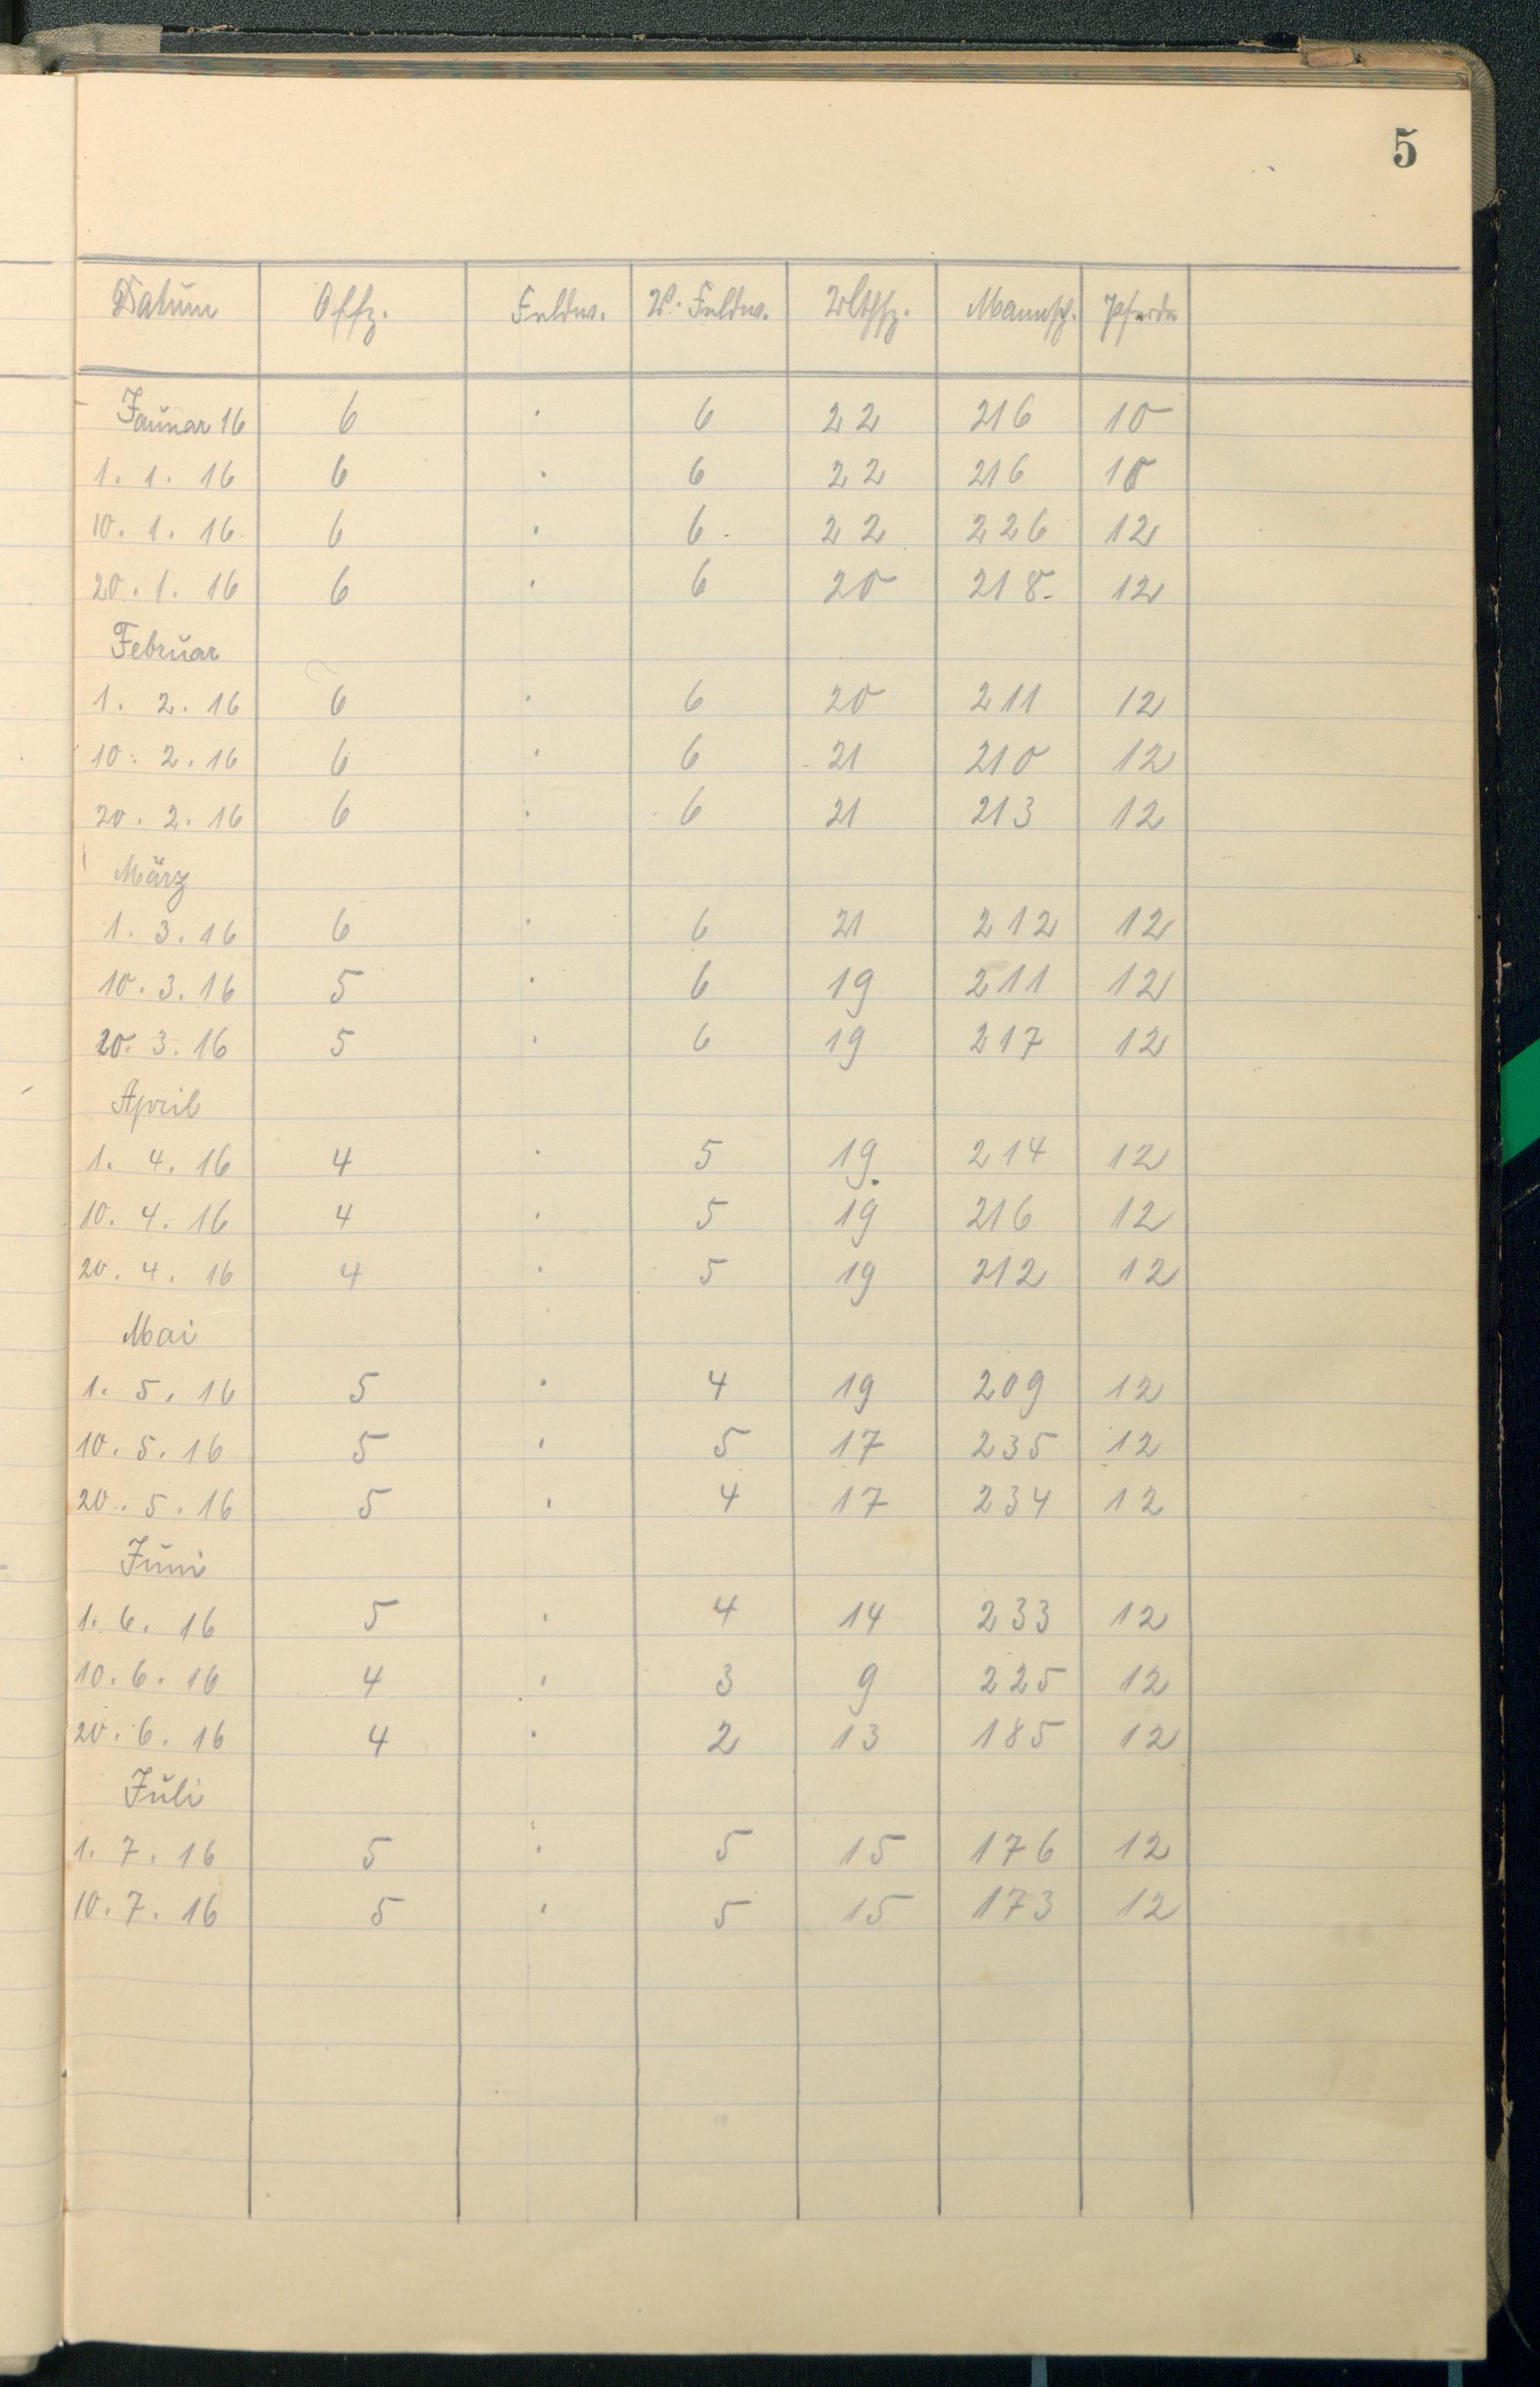 5
Datum Offz. Feldw. V. Feldw. Utffz. Mannsch. Pferde
Januar 16 6 . 6 22 216 10
1. 1. 16 6 . 6 22 216 10
10. 1. 16. 6 . 6. 22 226 12
20. 1. 16 6 . 6 20 218. 12
Februar
1. 2. 16 6 . 6 20 211 12
10. 2. 16 6 . 6 21 210 12
20. 2. 16 6 . 6 21 213 12
März
1. 3. 16 6 . 6 21 212 12
10. 3. 16 5 . 6 19 211 12
20. 3. 16 5 . 6 19 217 12
April
1. 4. 16 4 . 5 19 214 12
10. 4. 16 4 . 5 19 216 12
20. 4. 16 4 . 5 19 212 12
Mai
1. 5. 16 5 . 4 19 209 12
10. 5. 16 5 . 5 17 235 12
20. 5. 16 5 . 4 17 234 12
Juni
1. 6. 16 5 . 4 14 233 12
10. 6. 16 4 . 3 9 225 12
20. 6. 16 4 . 2 13 185 12
Juli
1. 7. 16 5 . 5 15 176 12
10. 7. 16 5 . 5 15 173 12